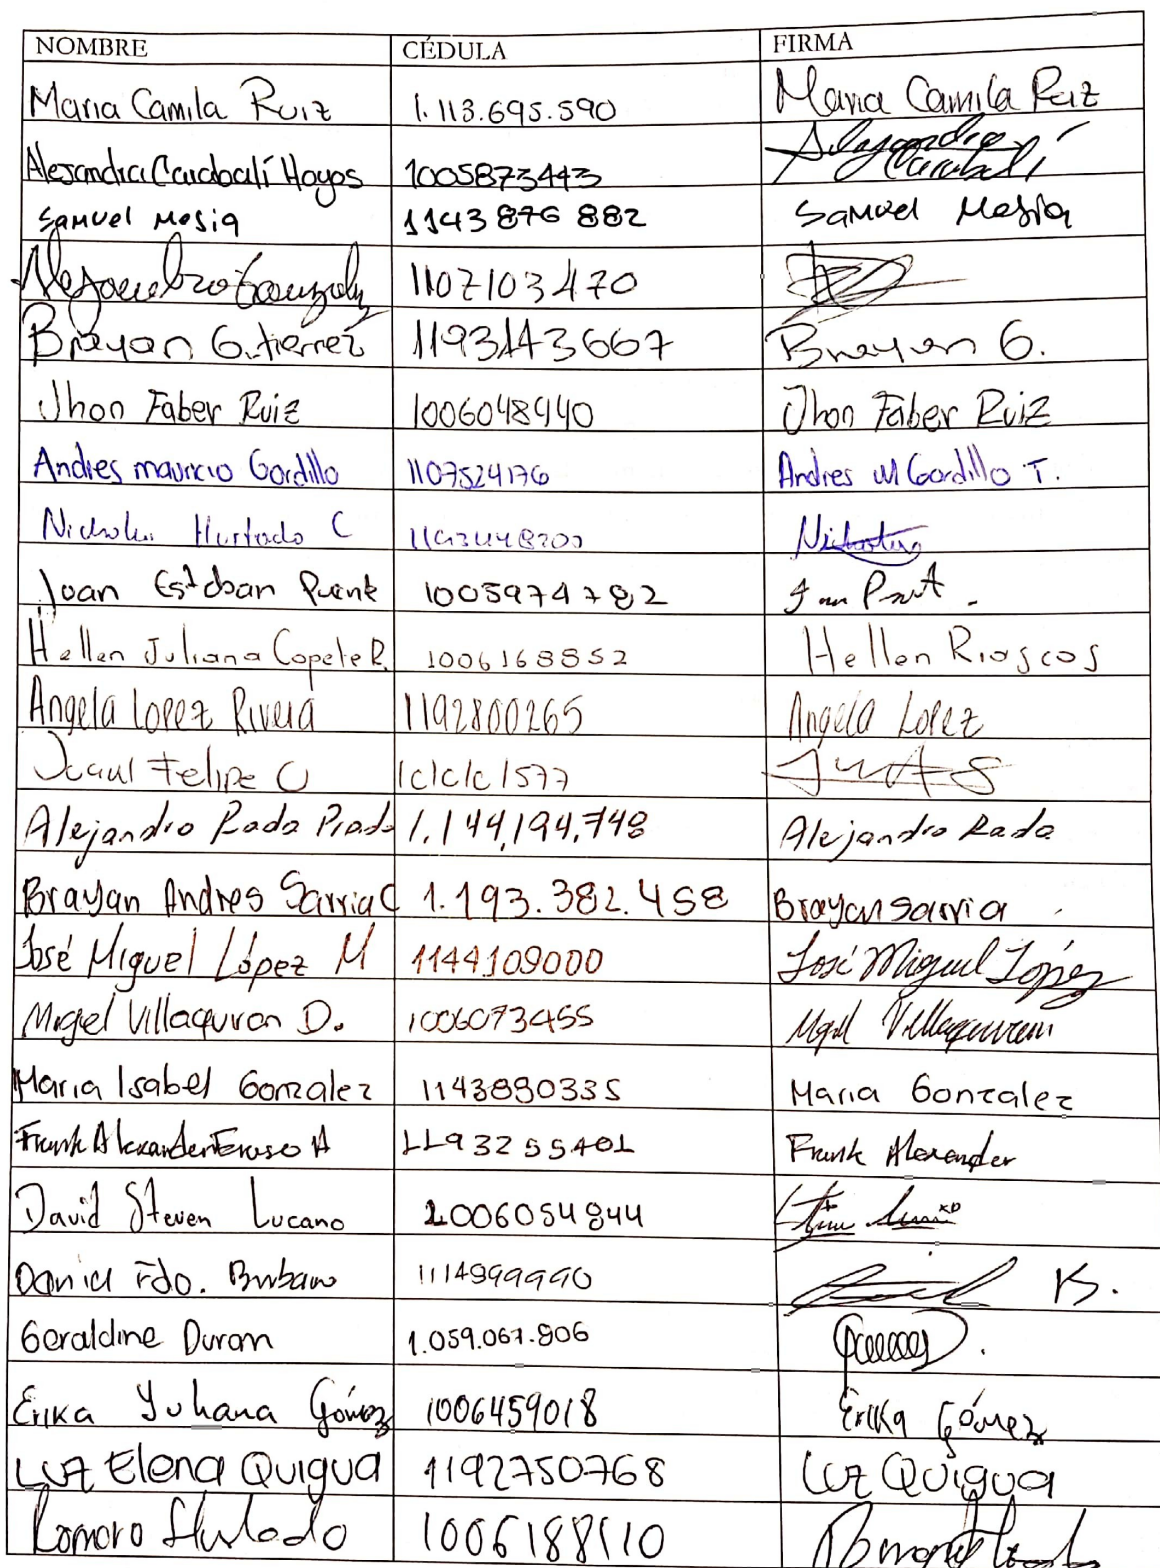 NOMBRE CÉDULA FIRMA
Maria Camila Ruiz 1.113.695.590 Maria Camila Ruiz
Alejandra Carabalí Hoyos 1005873443 Alejandra Carabalí
Samuel Mesia 1143 876 882 Samuel Mesia
Alejandro Gonzalez 1107103470
Brayan Gutierrez 1193143667 Brayan G.
Jhon Faber Ruiz 1006048940 Jhon Faber Ruiz
Andres mauricio Gordillo 1107524176 Andres M Gordillo T.
Nicholas Hurtado C
Juan Esteban 1005974782
Hellen Juliana Copete R. 1006168852 Hellen Rioscos
Angela Lopez Rivera 1192800265 Angela Lopez
Felipe
Alejandro Rada Prado 1.144,194,748 Alejandro Rada
Brayan Andres Sarria C 1.193.382.458 Brayan Sarria
José Miguel López M 1144109000 José Miguel López
Migel Villaquiran D. 1006073455 Villaquiran
Maria Isabel Gonzalez 1143880335 Maria Gonzalez
Frank Alexander A 1193255401 Frank Alexander
David Steven Lucano 1006054844
Daniel Fdo. Burbano 1114999990 B.
Geraldine Duran 1.059.067.806
Erika Yuhana Gómez 1006459018 Erika Gómez
Luz Elena Quigua 1192750768 Luz Quigua
Romero Hurtado 1006188110